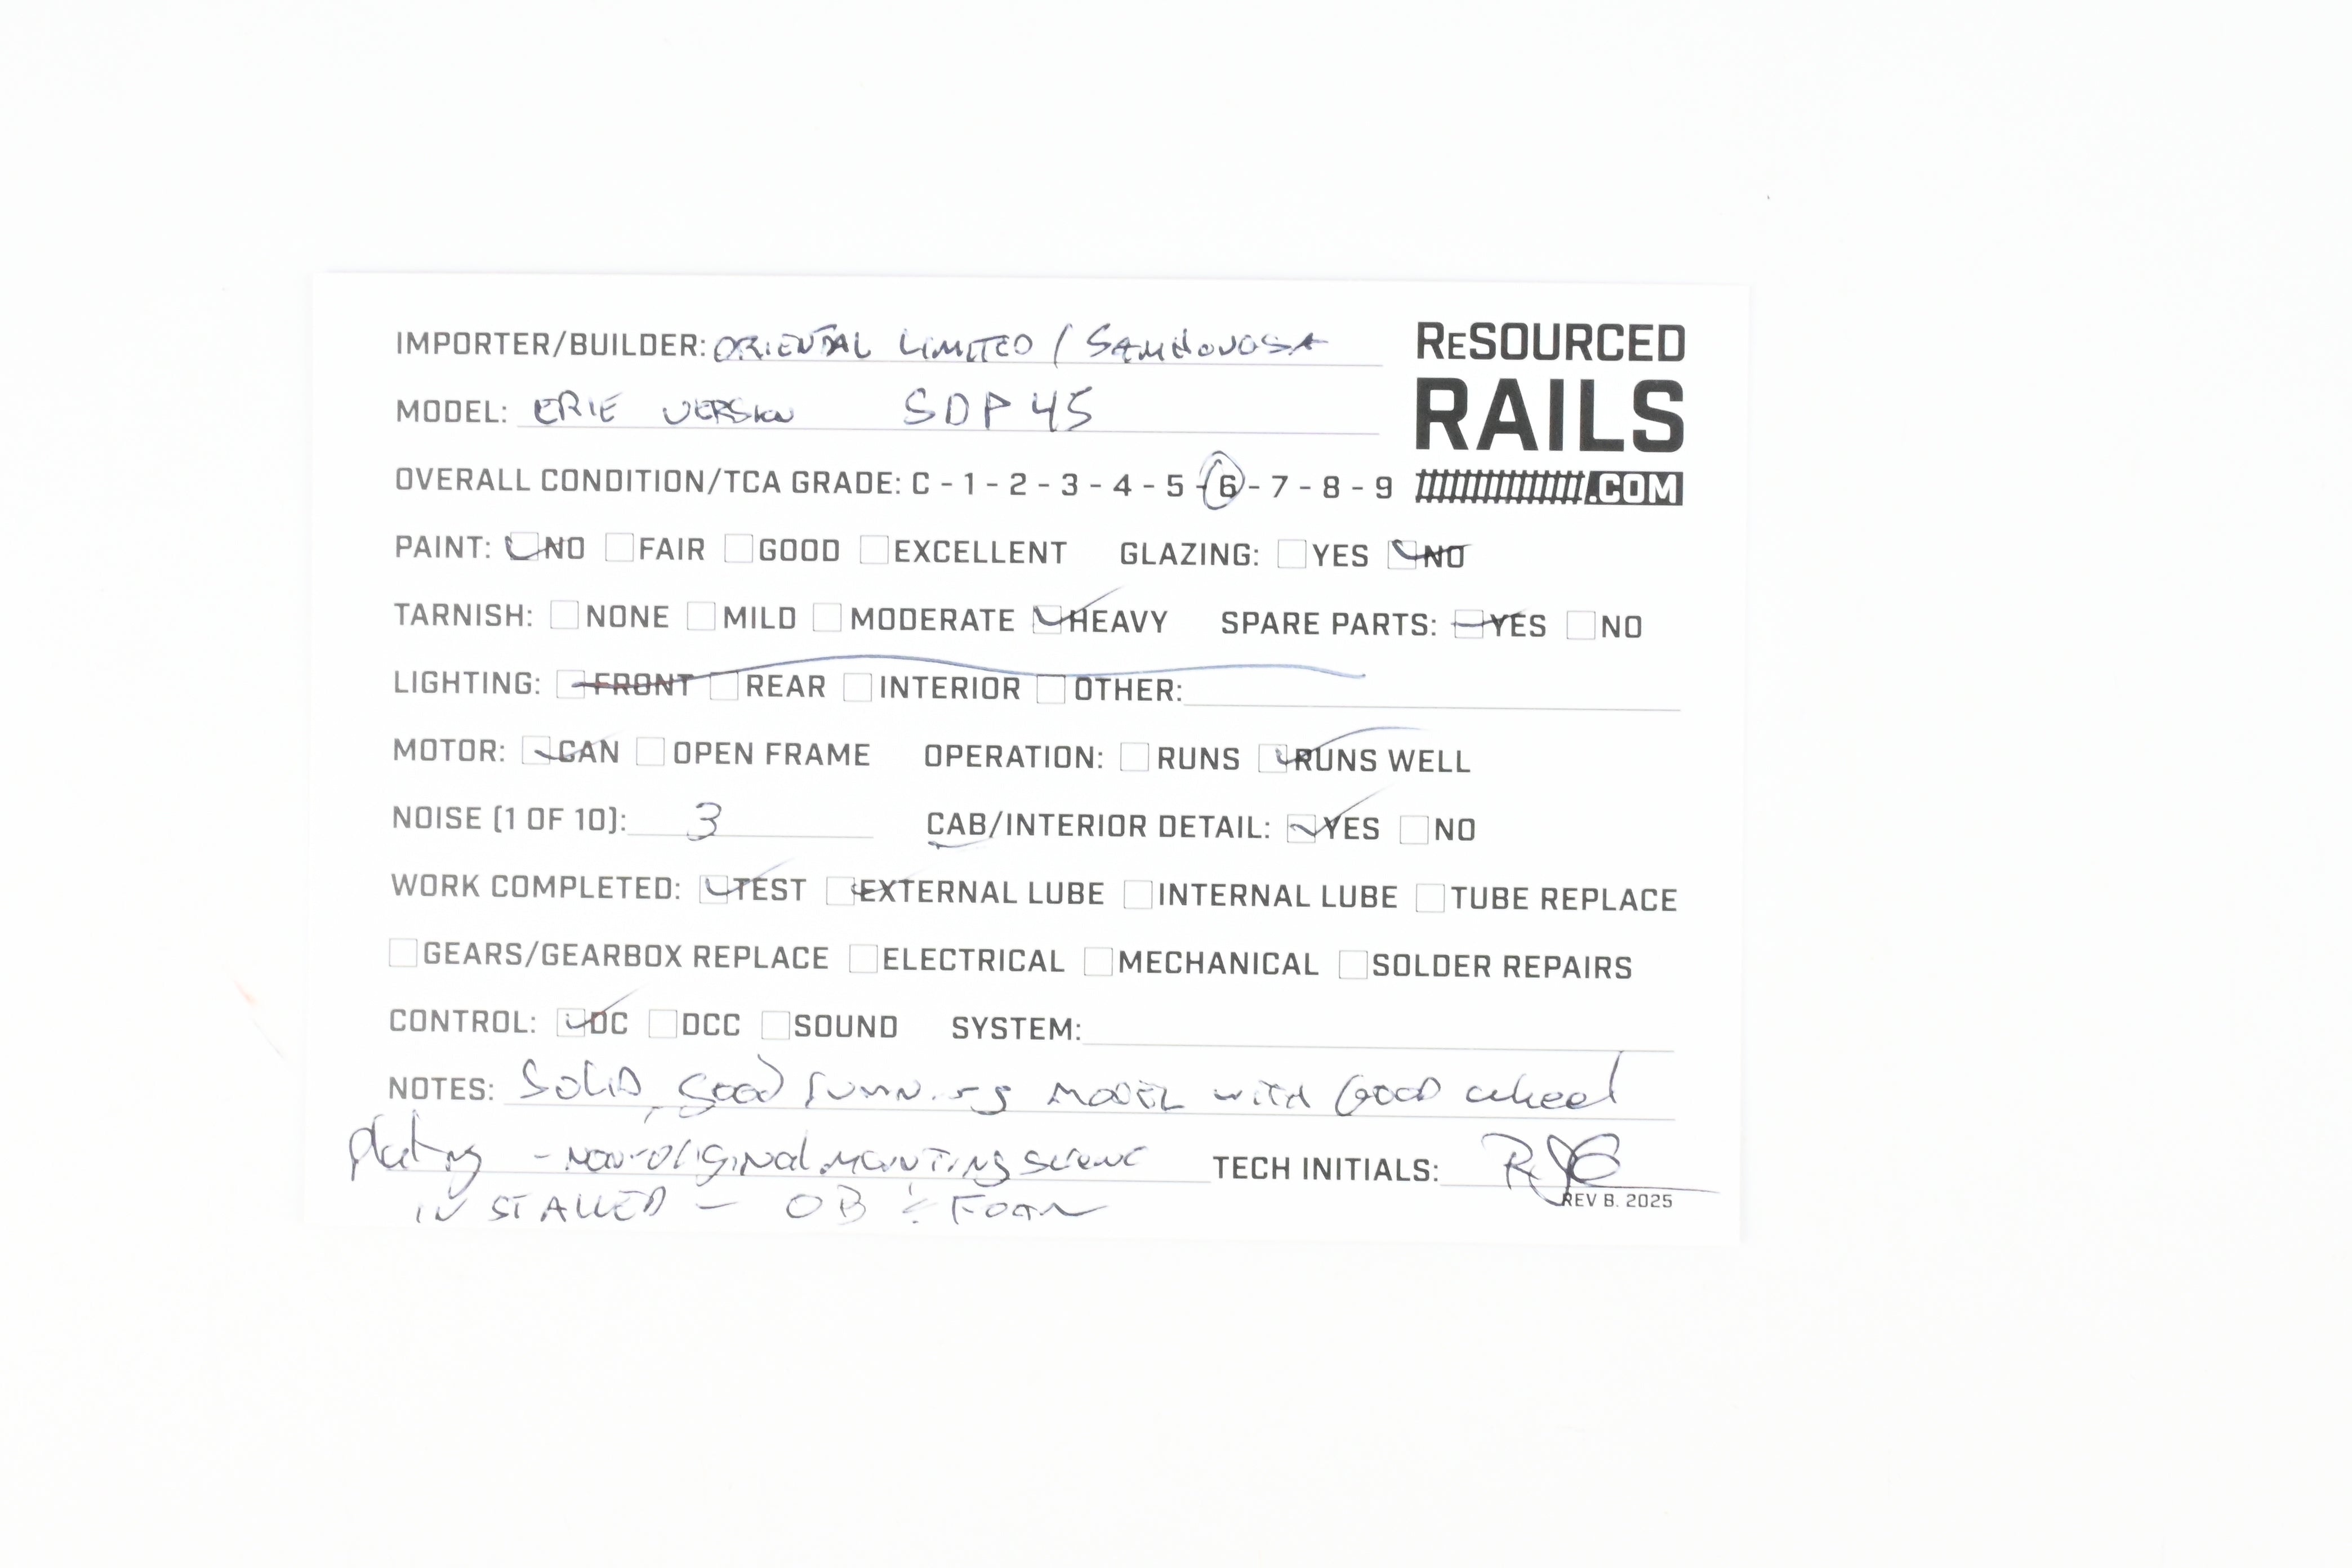 IMPORTER/BUILDER: ORIENTAL LIMITED / SAMHONGSA
RESOURCED
RAILS
.COM
MODEL: ERIE VERSION SDP45
OVERALL CONDITION/TCA GRADE: C - 1 - 2 - 3 - 4 - 5 - 6 - 7 - 8 - 9
PAINT: NO FAIR GOOD EXCELLENT GLAZING: YES NO
TARNISH: NONE MILD MODERATE HEAVY SPARE PARTS: YES NO
LIGHTING: FRONT REAR INTERIOR OTHER:
MOTOR: CAN OPEN FRAME OPERATION: RUNS RUNS WELL
NOISE (1 OF 10): 3 CAB/INTERIOR DETAIL: YES NO
WORK COMPLETED: TEST EXTERNAL LUBE INTERNAL LUBE TUBE REPLACE
GEARS/GEARBOX REPLACE ELECTRICAL MECHANICAL SOLDER REPAIRS
CONTROL: DC DCC SOUND SYSTEM:
NOTES: SOLID, good running MODEL with GOOD wheel
plating - NON-original mounting screws TECH INITIALS:
INSTALLED - OB & FOAM
REV B. 2025